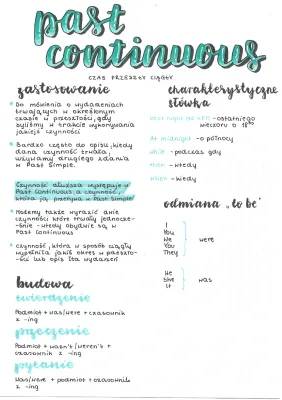 past
continuous
CZAS PRZESZŁY CIĄGŁY
zastosowanie
Do mówienia o wydarzeniach
trwających w określonym
czasie w przeszłości, gdy
byliśmy w trakcie wykonywania
jakiejś czynności
Bardzo często do opisu, kiedy
dana czynność trwała,
używamy drugiego zdania
w Past Simple.
Czynność dłuższa występuje w
Past Continuous a czynność,
która ją przerywa w Past Simple
Możemy także wyrazić dwie
czynności które trwały jednocze-
śnie - wtedy obydwie są w
Past Continuous
czynność, która w sposób ciągły
wypełniła jakiś okres w przeszło-
ści lub opis tła wydarzeń
budowa
twierdzenie
Podmiot + was/were + czasownik
z -ing
przeczenie
Podmiot + wasn't/weren't +
czasownik z -ing
pytanie
Was/were + podmiot + czasownik
z -ing
charakterystyczne
słówka
last night at - ostatniego
wieczoru o
At midnight - o północy
while - podczas gdy
then - wtedy
when - kiedy
odmiana „to be"
I
You
We
You
They
were
He
She
It
was